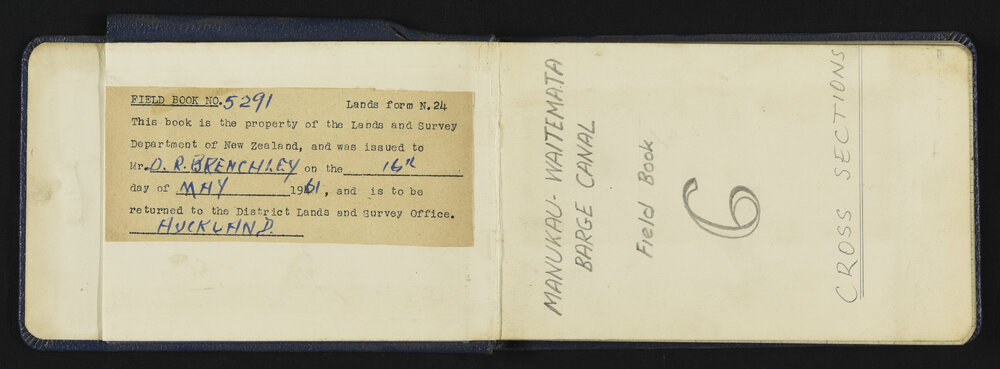 FIELD BOOK NO. 5291
Lands form N.24
This book is the property of the Lands and Survey
Department of New Zealand, and was issued to
Mr. D. R. BRENCHLEY on the 16th
day of MAY 1961, and is to be
returned to the District Lands and Survey Office.
AUCKLAND.
MANUKAU-WAITEMATA
BARGE CANAL
Field Book
6
CROSS SECTIONS